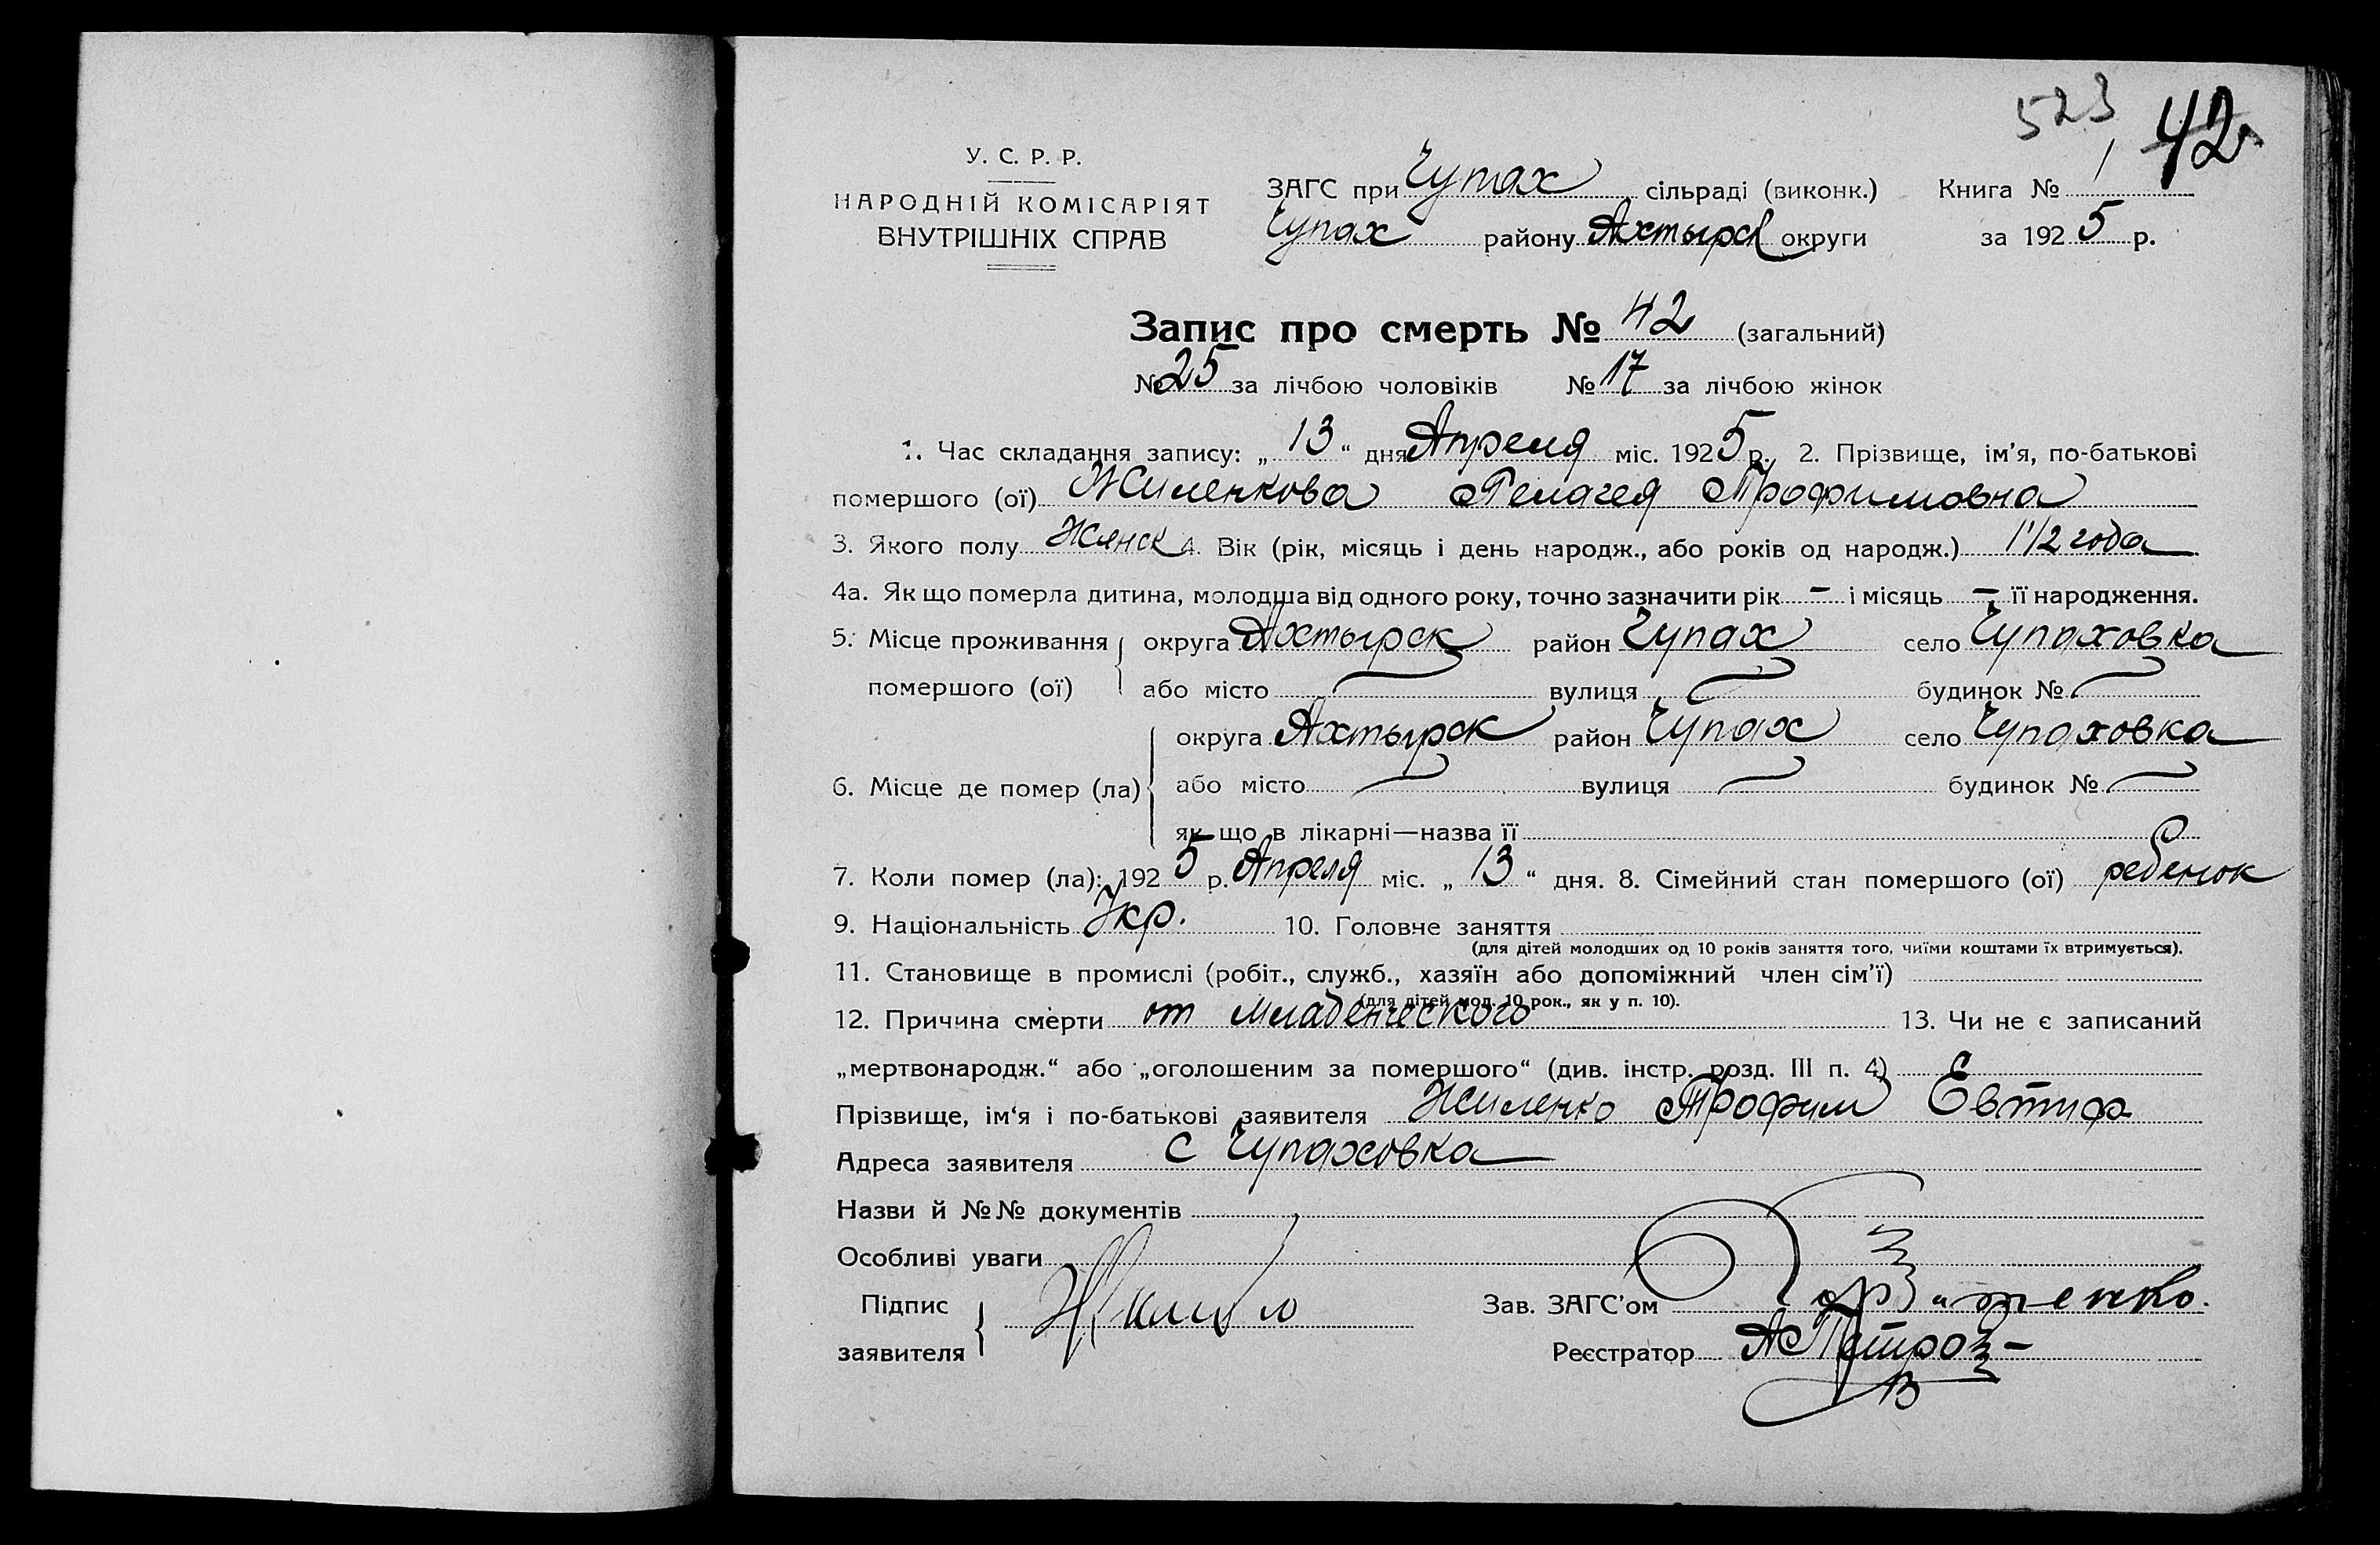 523 42
У. С. Р. Р.
НАРОДНІЙ КОМІСАРІЯТ
ВНУТРІШНІХ СПРАВ
ЗАГС при Чупах сільраді (виконк.) Книга № 1
Чупах району Ахтырск округи за 1925 р.
Запис про смерть № 42 (загальний)
№ 25 за лічбою чоловіків № 17 за лічбою жінок
1. Час складання запису: „ 13 “ дня Апреля міс. 1925 р. 2. Прізвище, ім'я, по-батькові
помершого (ої) Жиленкова Пелагея Трофимовна
3. Якого полу Женск 4. Вік (рік, місяць і день народж., або років од народж.) 1 1/2 года
4а. Як що померла дитина, молодша від одного року, точно зазначити рік – і місяць – її народження.
5. Місце проживання округа Ахтырск район Чупах село Чупаховка
помершого (ої) або місто вулиця будинок №
округа Ахтырск район Чупах село Чупаховка
6. Місце де помер (ла) або місто вулиця будинок №
як що в лікарні—назва її
7. Коли помер (ла): 1925 р. Апреля міс. „ 13 “ дня. 8. Сімейний стан помершого (ої) ребенок
9. Національність Укр. 10. Головне заняття
(для дітей молодших од 10 років заняття того, чиїми коштами їх втримується).
11. Становище в промислі (робіт., служб., хазяїн або допоміжний член сім'ї)
(для дітей мол. 10 рок., як у п. 10).
12. Причина смерти от Младенческого 13. Чи не є записаний
„мертвонародж.“ або „оголошеним за помершого“ (див. інстр. розд. III п. 4)
Прізвище, ім'я і по-батькові заявителя Жиленко Трофим Евтиф
Адреса заявителя с Чупаховка
Назви й №№ документів
Особливі уваги
Підпис
заявителя
Зав. ЗАГС'ом
Реєстратор